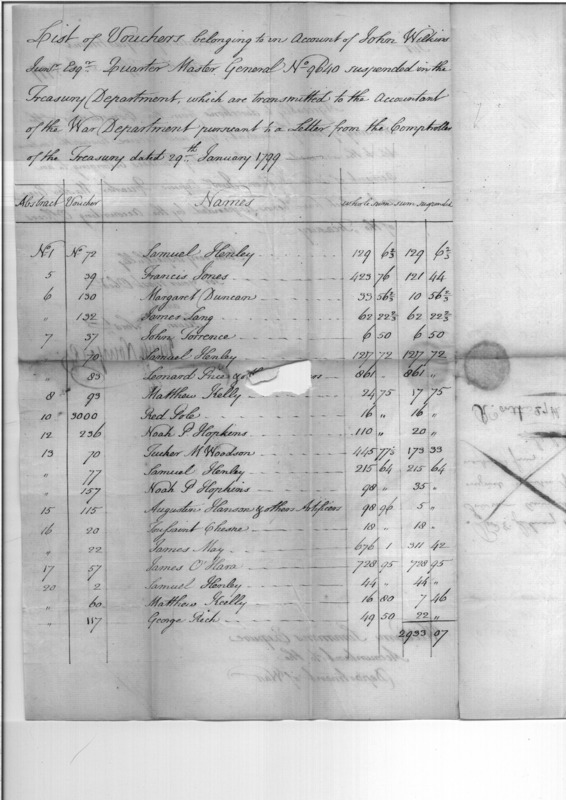 List of Vouchers belonging to an Account of John Wilkins
Junr. Esqr. Quarter Master General No. 9640 suspended in the
Treasury Department, which are transmitted to the Accountant
of the War Department pursuant to a Letter from the Comptroller
of the Treasury dated 29th January 1799
Abstract Voucher Names whole sum sum suspended
No. 1 No. 72 Samuel Henley 129 6 2/3 129 6 2/3
5 39 Francis Jones 423 76 121 44
6 130 Margaret Duncan 33 56 2/3 10 56 2/3
" 132 James Lang 62 22 2/3 62 22 2/3
7 37 John Torrence 6 50 6 50
" 70 Samuel Henley 1217 72 1217 72
" 83 Leonard 861 " 861 "
8 93 Matthew Kelly 24 75 17 75
10 3000 Red Pole 16 " 16 "
12 236 Noah P Hopkins 110 " 20 "
13 70 Tucker M Woodson 445 77 173 33
" 77 Samuel Henley 215 64 215 64
" 157 Noah P Hopkins 98 " 35 "
15 115 Augustin Hanson & others Artificers 98 96 5 "
16 20 Tousaint Chesne 18 " 18 "
" 22 James May 676 1 311 42
17 57 James O'Hara 728 95 728 95
20 2 Samuel Henley 44 " 44 "
" 60 Matthew Kelly 16 80 7 46
" 117 George Rich 49 50 22 "
2933 97